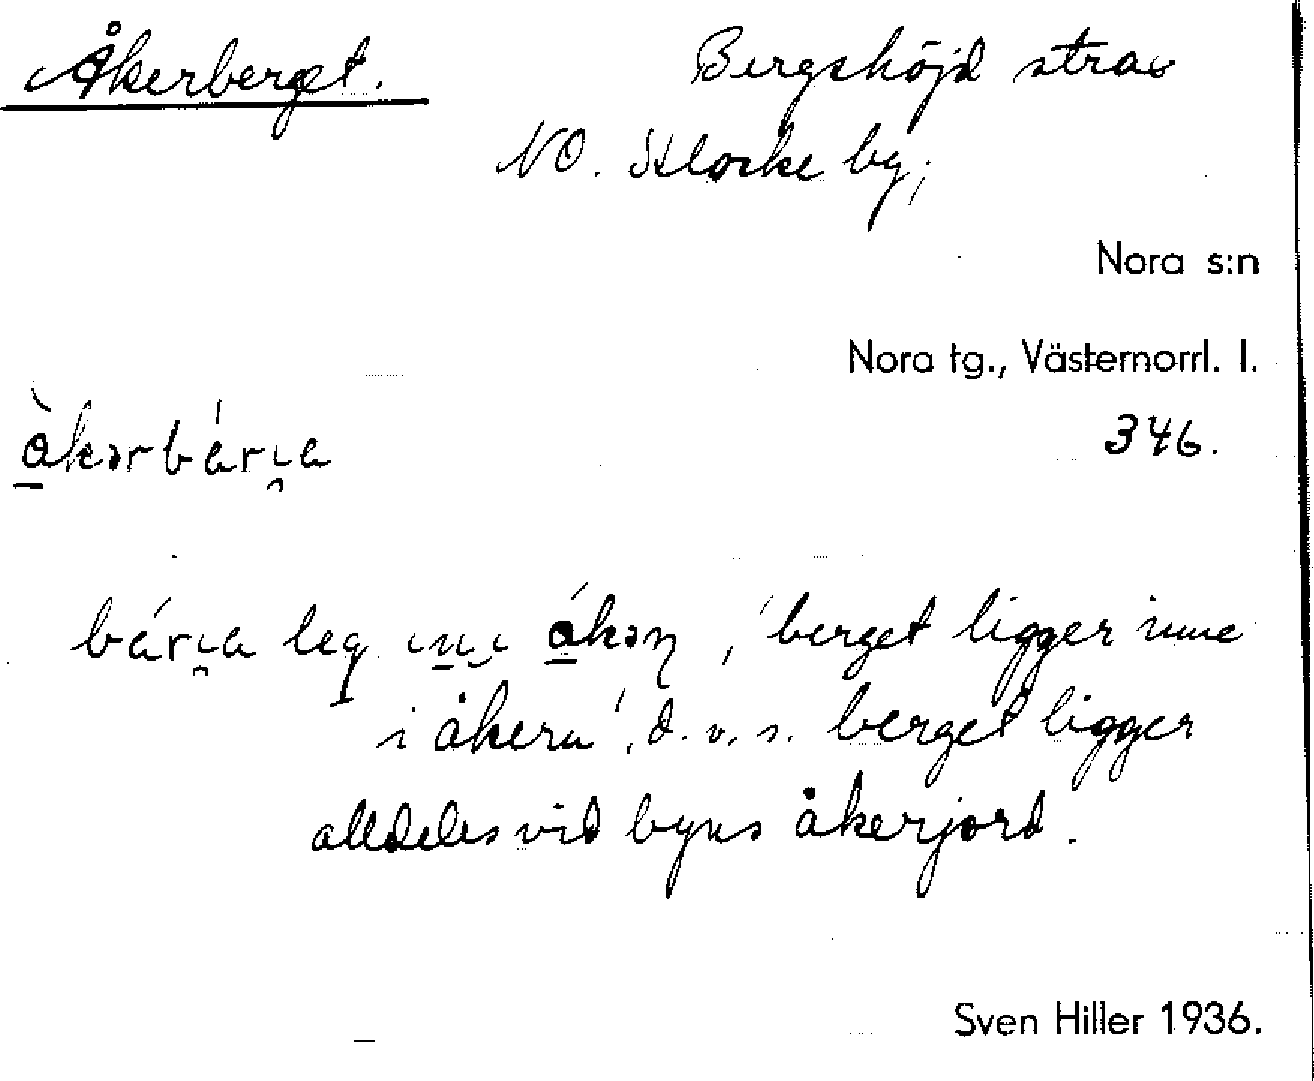 Åkerberget. Bergshöjd strax
NO. Klocke by;
Nora s:n
Nora tg., Västernorrl. l.
346.
å̱̀kərbárı̯a
bárı̯a leg ını ǻ̱kəɳ, 'berget ligger inne
i åkern', d. v. s. berget ligger
alldeles vid byns åkerjord.
Sven Hiller 1936.